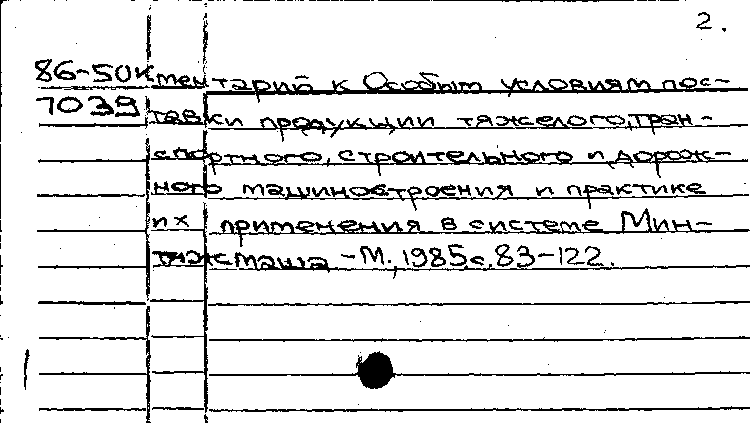 2.
86-50 Кментарий к Особым условиям пос-
7039 тавки продукции тяжелого, тран-
спортного, строительного и дорож-
ного машиностроения и практике
их применения в системе Мин-
тяжмаша - М., 1985 с. 83-122.